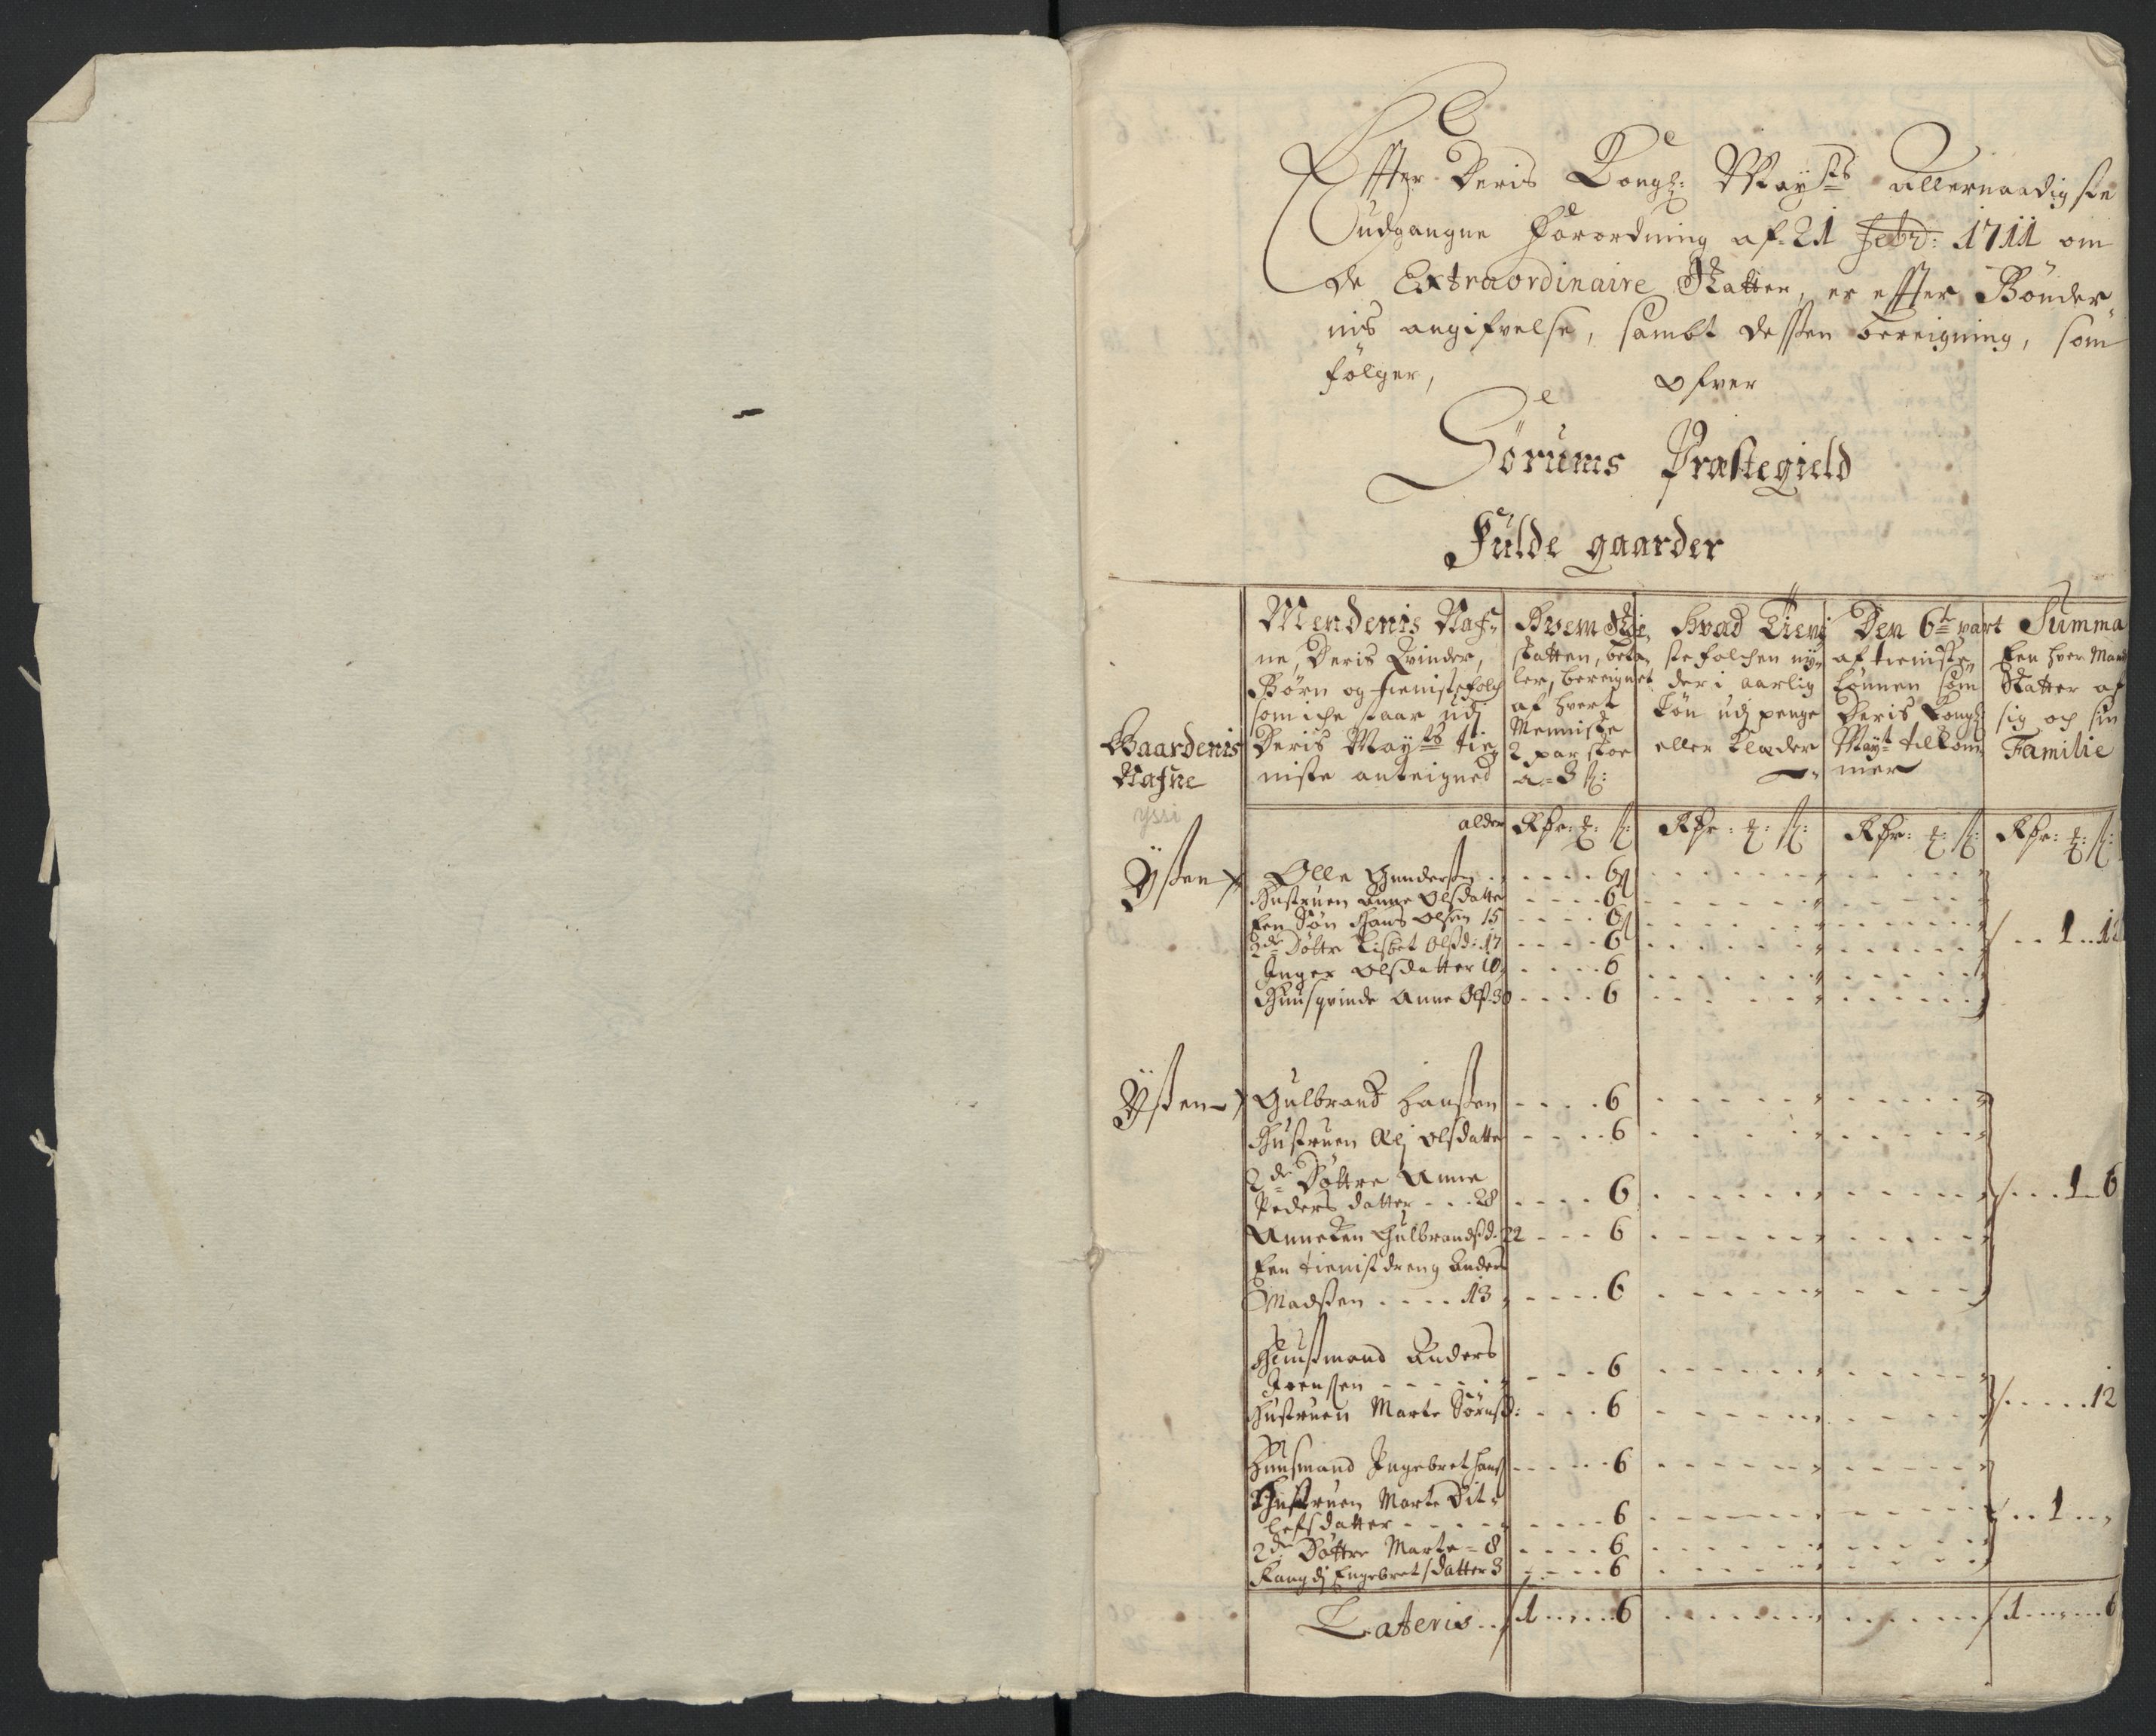 Efter Deris Kongl: Mayts allernaadigste
udgangne Forordning af 21 Febr: 1711 om
de Extraordinaire Skatter, er effter Bønder
nis angifvelse, sambt dessen bereigning, som
følger,
ofver
Sørums Præstegield
Fulde gaarder
Gaardenis
Nafne
Mendenis Naf-
ne, Deris Qvinder,
Børn og tienistefolch
som iche staar udj
Deris Mayts tie-
niste anteigned
Hvem Skoe
skatten, beta-
ler, bereignet
af hvert
Menniske
2 par skoe
a 3 s:
Hvad Tieni
stefolchen ny-
der i aarlig
Løn udj penge
eller Klæder
Den 6te part
af tieniste
Lønnen som
Deris Kongl:
Mayt tilkom-
mer
Summa
Een hver Mands
Skatter af
sig och sin
Familie
alder Rdr: : s: Rdr: : s: Rdr: : s: Rdr: : s:
yssi
Ÿsten Olle Gundersen 6
Hustruen Anne Olsdatter 6
Een Søn Hans Olsen 15 6
2de Døttr Lisbet Olsd: 17 6 1 12
Inger Olsdatter 10 6
Huusqvinde Anne Ols: 30 6
Ÿsten Gulbrand Hansen 6
Hustruen Alj Olsdatter 6
2de Døttre Anne
Peders datter 28 6 1 6
Anneken Gulbrandsd: 22 6
Een tienistdreng Anders
Madsen 13 6
Huusmand Anders
Joensen 6
Hustruen Marte Sørensd: 6 12
Huusmand Ingebret Hans 6
Hustruen Marte Dit-
lefsdatter 6 1
2de Døttre Marte 8 6
Rangdj Engebretsdatter 3 6
Lateris 1 6 1 6